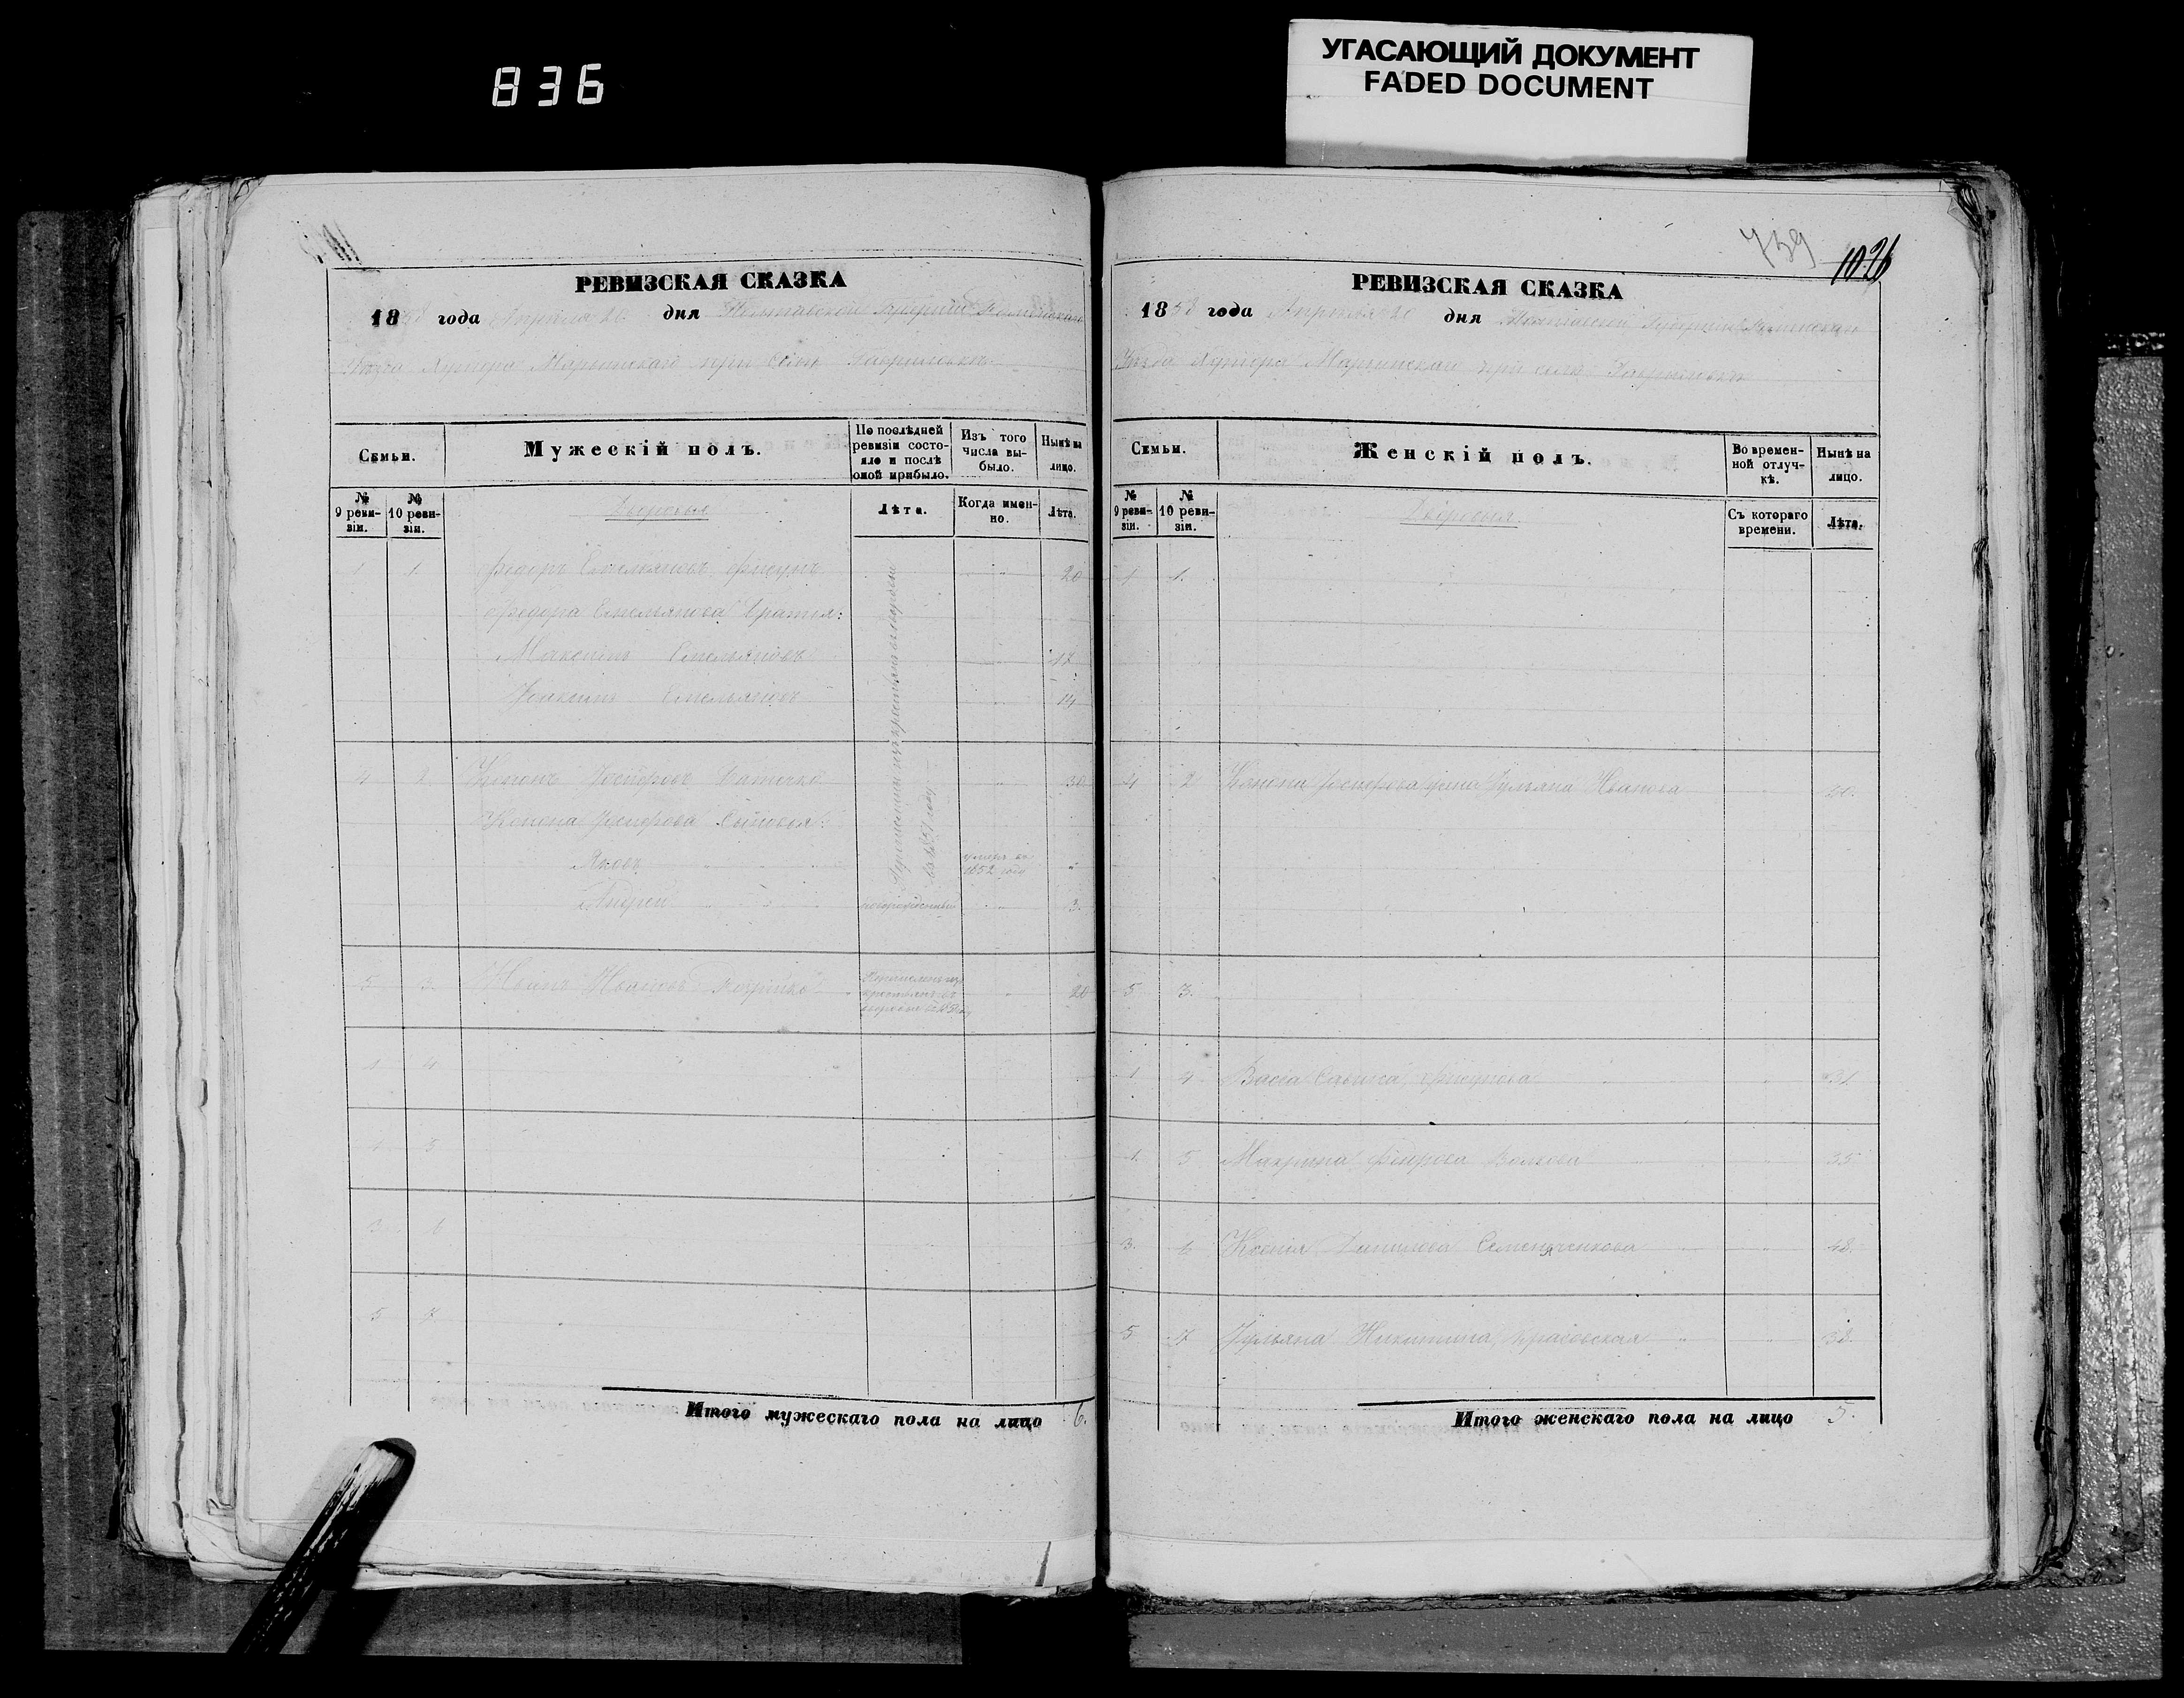 836
УГАСАЮЩИЙ ДОКУМЕНТ
FADED DOCUMENT
РЕВИЗСКАЯ СКАЗКА
1858 года Апреля 26 дня Полтавской Губерніи Роменскаго
Уѣзда Хутора Марьинскаго при Селѣ Гавриловкѣ
Семьи.
Мужескій полъ.
По послѣдней ревизіи состояло и послѣ оной прибыло.
Изъ того числа выбыло.
Нынѣ на лицо.
№ 9 ревизіи.
№ 10 ревизіи.
Дворовыя
Лѣта.
Когда именно.
Лѣта.
1 1. Федоръ Емельяновъ Фисунъ 20
Федора Емельянова братья:
Максимъ Емельяновъ 17
Іоакимъ Емельяновъ 14
4 2 Кононъ Іосифовъ 30
Конона Іосифова Сыновья:
Яковъ умеръ въ 1852 году "
Андрей новорожденный 3.
5 3. Иванъ Ивановъ 20
1 4
1 5
3 6
5 7
Итого мужескаго пола на лицо 6.
759
1026
РЕВИЗСКАЯ СКАЗКА
1858 года Апреля 26 дня Полтавской Губерніи Роменскаго
Уѣзда Хутора Марьинскаго при селѣ Гавриловкѣ
Семьи.
Женскій полъ.
Во временной отлучкѣ.
Нынѣ на лицо.
№ 9 ревизіи.
№ 10 ревизіи.
Дворовыя.
Съ котораго времени.
Лѣта.
1 1.
4 2 Конона Іосифова жена Іульяна Иванова
5 3.
1 4 Васса Савина Фисунова 31
1. 5 Макрина Федорова Волкова 35
3. 6 Ксенія Данилова Семенченкова 48.
5 7 Іульяна Никитина 38.
Итого женскаго пола на лицо 5.